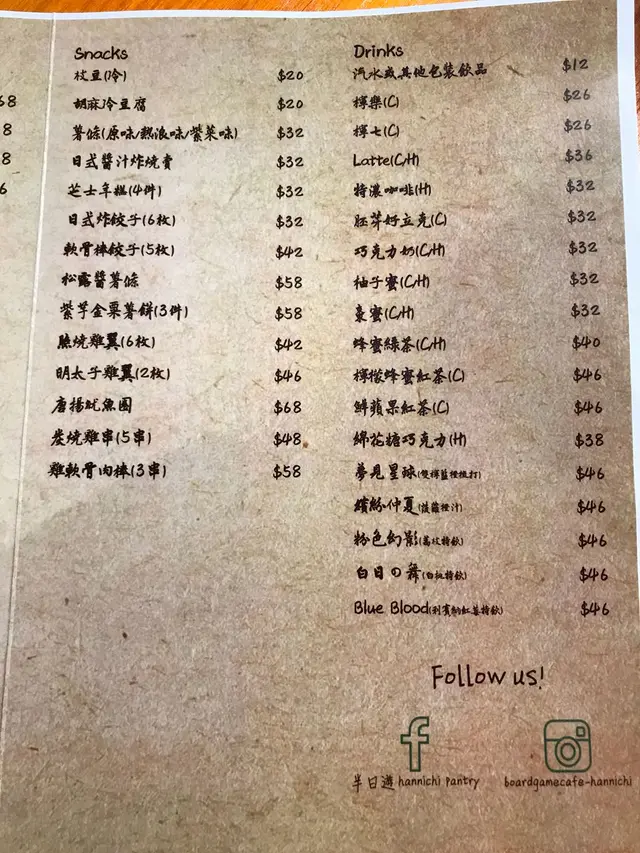 68
8
8
6
Snacks
枝豆(冷) $20
胡麻冷豆腐 $20
薯條(原味/熱浪味/紫菜味) $32
日式醬汁炸燒賣 $32
芝士年糕(4件) $32
日式炸餃子(6枚) $32
軟骨棒餃子(5枚) $42
松露醬薯條 $58
紫芋金粟薯餅(3件) $58
脆燒雞翼(6枚) $42
明太子雞翼(2枚) $46
唐揚魷魚圈 $68
炭燒雞串(5串) $48
雞軟骨肉棒(3串) $58
Drinks
汽水或其他包裝飲品 $12
檸樂(C) $26
檸七(C) $26
Latte(C/H) $36
特濃咖啡(H) $32
胚芽好立克(C) $32
巧克力奶(C/H) $32
柚子蜜(C/H) $32
棗蜜(C/H) $32
蜂蜜綠茶(C/H) $40
檸檬蜂蜜紅茶(C) $46
鮮蘋果紅茶(C) $46
綿花糖巧克力(H) $38
夢見星球(雙檸藍橙梳打) $46
繽紛仲夏(菠蘿橙汁) $46
粉色幻影(荔枝特飲) $46
白日の舞(白桃特飲) $46
Blue Blood(利賓納紅莓特飲) $46
Follow us!
半日遊 hannichi pantry
boardgamecafe-hannichi